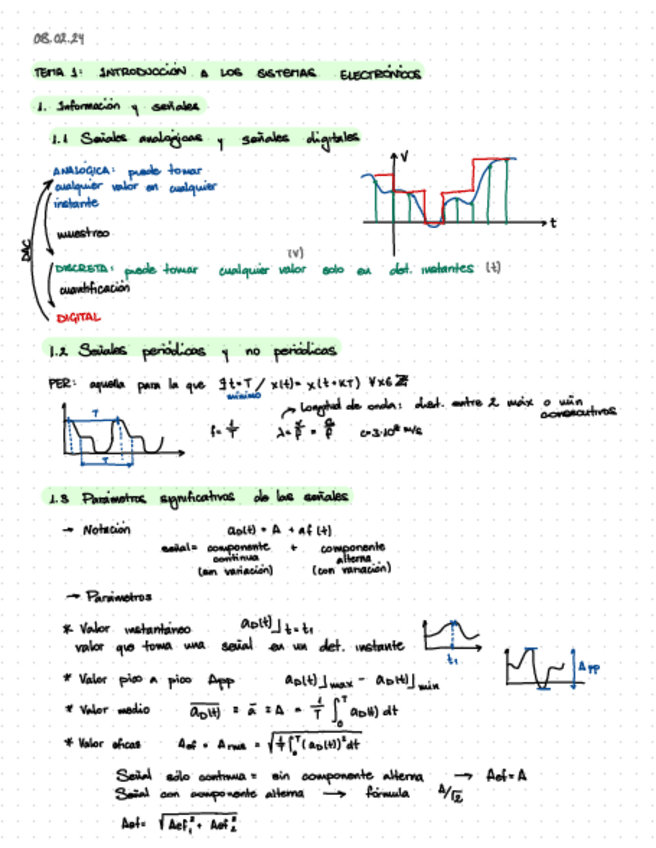 08.02.24
TEMA 1: INTRODUCCIÓN A LOS SISTEMAS ELECTRÓNICOS
1. Información y señales
1.1 Señales analógicas y señales digitales
ANALÓGICA: puede tomar
cualquier valor en cualquier
instante
V
t
muestreo
DAC
(V)
DISCRETA: puede tomar cualquier valor solo en det. instantes (t)
cuantificación
DIGITAL
1.2 Señales periódicas y no periódicas
PER: aquella para la que ∃ t=T / x(t)= x(t+KT) ∀K∈ℤ
mínimo
Longitud de onda: dist. entre 2 máx o mín
consecutivos
T
T
f = 1/T
c=3·10⁸ m/s
1.3 Parámetros significativos de las señales
→ Notación a_D(t) = A + af(t)
señal = componente + componente
continua alterna
(sin variación) (con variación)
→ Parámetros
* Valor instantáneo a_D(t)⌋ t=t₁
valor que toma una señal en un det. instante
t₁
* Valor pico a pico App a_D(t)⌋max - a_D(t)⌋min
App
* Valor medio a_D(t) = ā = A = 1/T ∫₀ᵀ a_D(t) dt
* Valor eficaz Aef = Arms = √(1/T ∫₀ᵀ (a_D(t))² dt)
Señal sólo continua = sin componente alterna → Aef = A
Señal con componente alterna → fórmula A/√2
Aef = √(Aef₁² + Aef₂²)